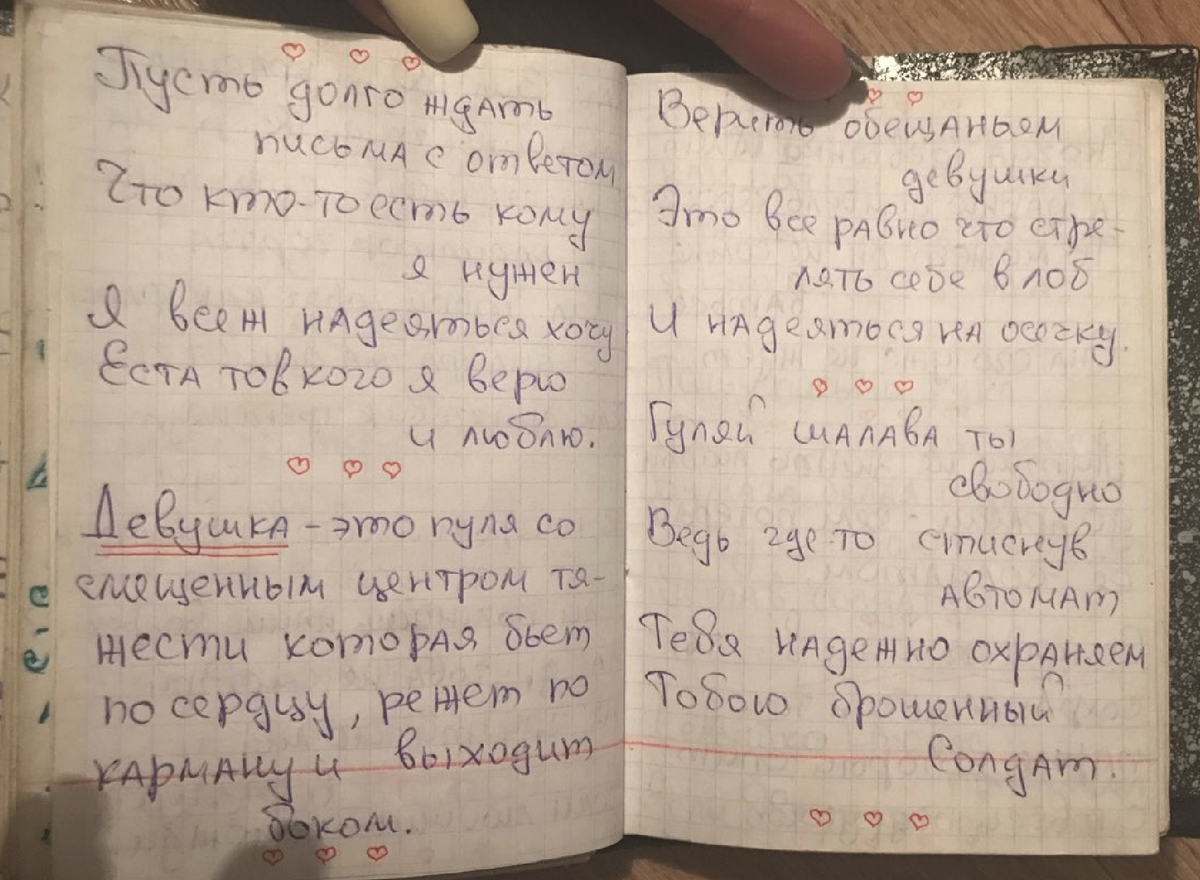 Пусть долго ждать
письма с ответом
Что кто-то есть кому
я нужен
Я всеж надеяться хочу
Еста тов кого я верю
и люблю.
Девушка - это пуля со
смещенным центром тя-
жести которая бьет
по сердцу, режет по
карману и выходит
боком.
Верить обещаньям
девушки
Это все равно что стре-
лять себе в лоб
И надеяться на осечку.
Гуляй шалава ты
свободно
Ведь где-то стиснув
автомат
Тебя надежно охраняем
Тобою брошенный
Солдат.